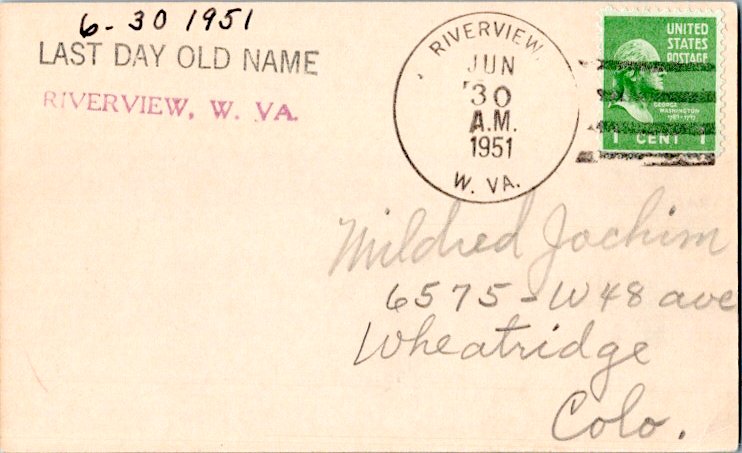 6-30 1951
LAST DAY OLD NAME
RIVERVIEW, W. VA.
RIVERVIEW,
JUN
30
A.M.
1951
W. VA.
UNITED
STATES
POSTAGE
GEORGE
WASHINGTON
1789-1797
1 CENT 1
Mildred Jochim
6575-W48 ave
Wheatridge
Colo.